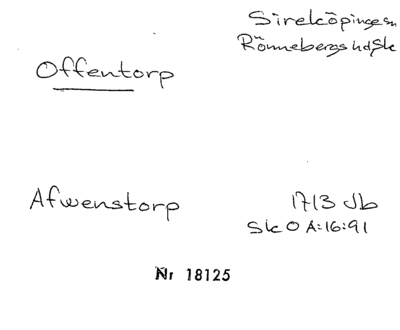 Sireköpinge sn
Rönnebergs hd Sk
Offentorp
Afwenstorp
1713 Jb
Sk O A:16:91
Nr 18125